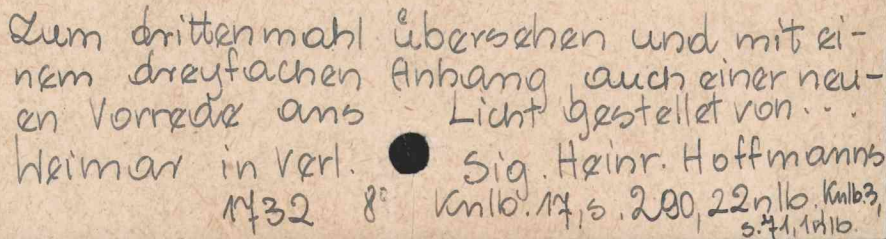 Zum drittenmahl übersehen und mit ei-
nem dreyfachen Anhang auch einer neu-
en Vorrede ans Licht gestellet von...
Weimar in Verl. Sig. Heinr. Hoffmanns
1732 8° Knlb. 17, s. 290, 22 nlb. Knlb. 3,
s. 71, 1 nlb.